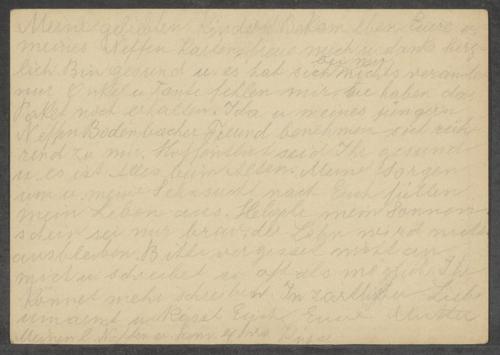 Meine geliebten Kinder! Bekam eben Eure u.
meines Neffen Karten, freue mich u. danke herz-
lich. Bin gesund u. es hat sich bei mir nichts verändert
nur Onkel u. Tante fehlen mir. Sie haben das
Paket noch erhalten. Ida u. meines jüngern
Neffen Bodenbacher Freund benehmen sich rüh-
rend zu mir. Hoffentlich seid Ihr gesund
u. es ist alles beim Alten. Meine Sorgen
um u. meine Sehnsucht nach Euch füllen
mein Leben aus. Helgele mein Sonnen-
schein sei nur brav, der Lohn wird nicht
ausbleiben. Bitte vergesset nicht an
mich u. schreibet so oft als möglich. Ihr
könnet mehr schreiben. In zärtlicher Liebe
umarmt u. küsst Euch Eure Mutter
Meinen l. Neffen u.